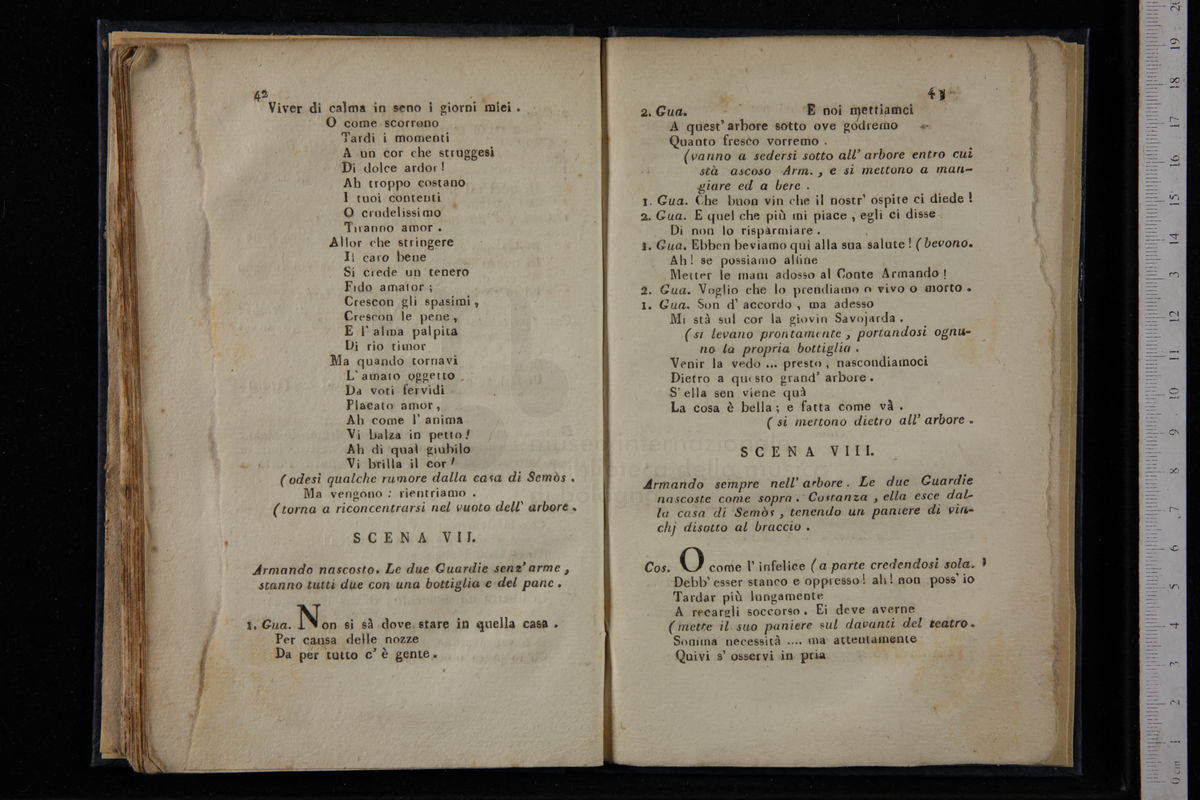 42
Viver di calma in seno i giorni miei .
O come scorrono
Tardi i momenti
A un cor che struggesi
Di dolce ardor !
Ah troppo costano
I tuoi contenti
O crudelissimo
Tiranno amor .
Allor che stringere
Il caro bene
Si crede un tenero
Fido amator ;
Crescon gli spasimi ,
Crescon le pene ,
E l' alma palpita
Di rio timor
Ma quando tornavi
L' amato oggetto
Da voti fervidi
Placato amor ,
Ah come l' anima
Vi balza in petto !
Ah di qual giubilo
Vi brilla il cor !
( odesi qualche rumore dalla casa di Semòs .
Ma vengono : rientriamo .
( torna a riconcentrarsi nel vuoto dell' arbore .
SCENA VII.
Armando nascosto. Le due Guardie senz' arme ,
stanno tutti due con una bottiglia e del pane .
1. Gua. Non si sà dove stare in quella casa .
Per causa delle nozze
Da per tutto c' è gente .
43
2. Gua. E noi mettiamci
A quest' arbore sotto ove godremo
Quanto fresco vorremo .
( vanno a sedersi sotto all' arbore entro cui
stà ascoso Arm. , e si mettono a man-
giare ed a bere .
1. Gua. Che buon vin che il nostr' ospite ci diede !
2. Gua. E quel che più mi piace , egli ci disse
Di non lo risparmiare .
1. Gua. Ebben beviamo qui alla sua salute ! ( bevono.
Ah ! se possiamo alfine
Metter le mani adosso al Conte Armando !
2. Gua. Voglio che lo prendiamo o vivo o morto .
1. Gua. Son d' accordo , ma adesso
Mi stà sul cor la giovin Savojarda .
( si levano prontamente , portandosi ognu-
no la propria bottiglia .
Venir la vedo ... presto , nascondiamoci
Dietro a questo grand' arbore .
S' ella sen viene quà
La cosa è bella ; e fatta come và .
( si mettono dietro all' arbore .
SCENA VIII.
Armando sempre nell' arbore . Le due Guardie
nascoste come sopra . Costanza , ella esce dal-
la casa di Semòs , tenendo un paniere di vin-
chj disotto al braccio .
Cos. O come l' infelice ( a parte credendosi sola. )
Debb' esser stanco e oppresso ! ah ! non poss' io
Tardar più lungamente
A recargli soccorso . Ei deve averne
( mette il suo paniere sul davanti del teatro .
Somma necessità .... ma attentamente
Quivi s' osservi in pria